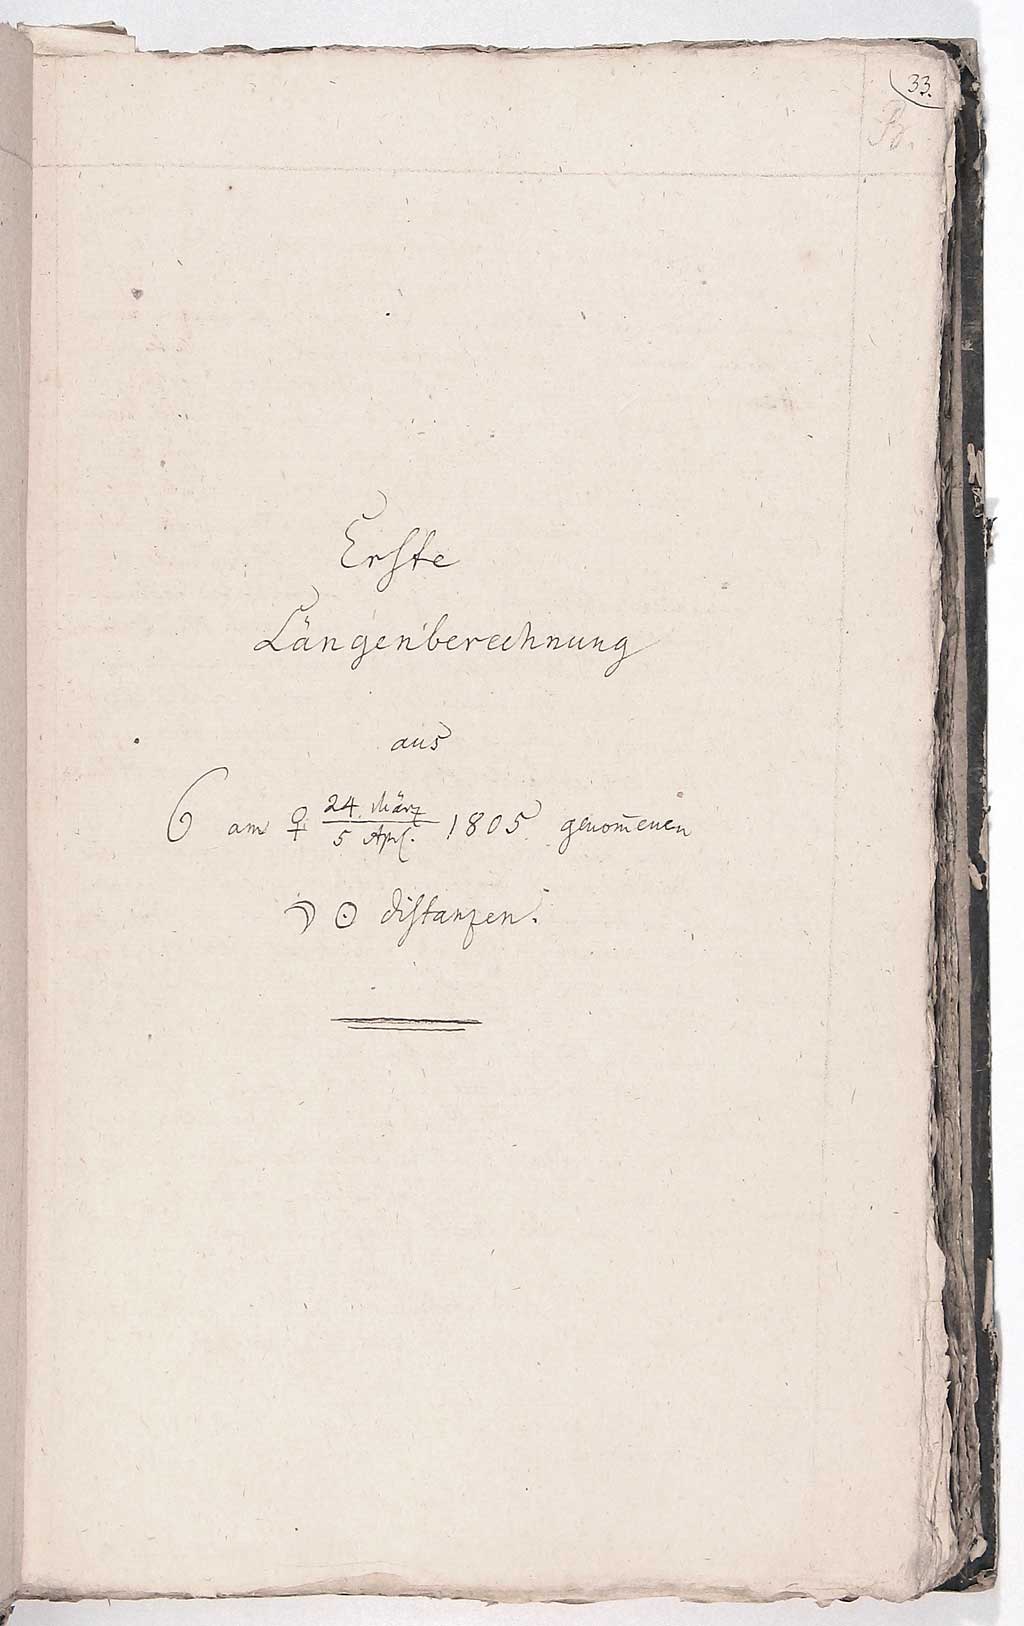 33.
B.
Erste
Längenberechnung
aus
6 am ♀ 24. März / 5 Apl. 1805 genom̅enen
☽ ☉ distanzen.